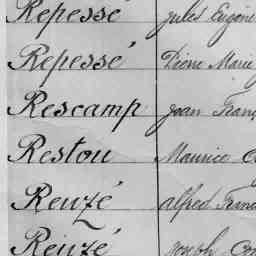 Repessé Jules Eugène
Repessé Marie
Rescamp Jean Franç
Restou Maurice
Reuzé Alfred Franc
Reuzé Joseph